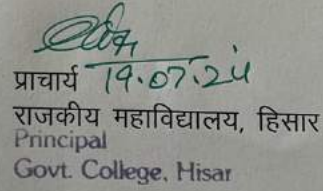 प्राचार्य 19.07.24
राजकीय महाविद्यालय, हिसार
Principal
Govt. College, Hisar